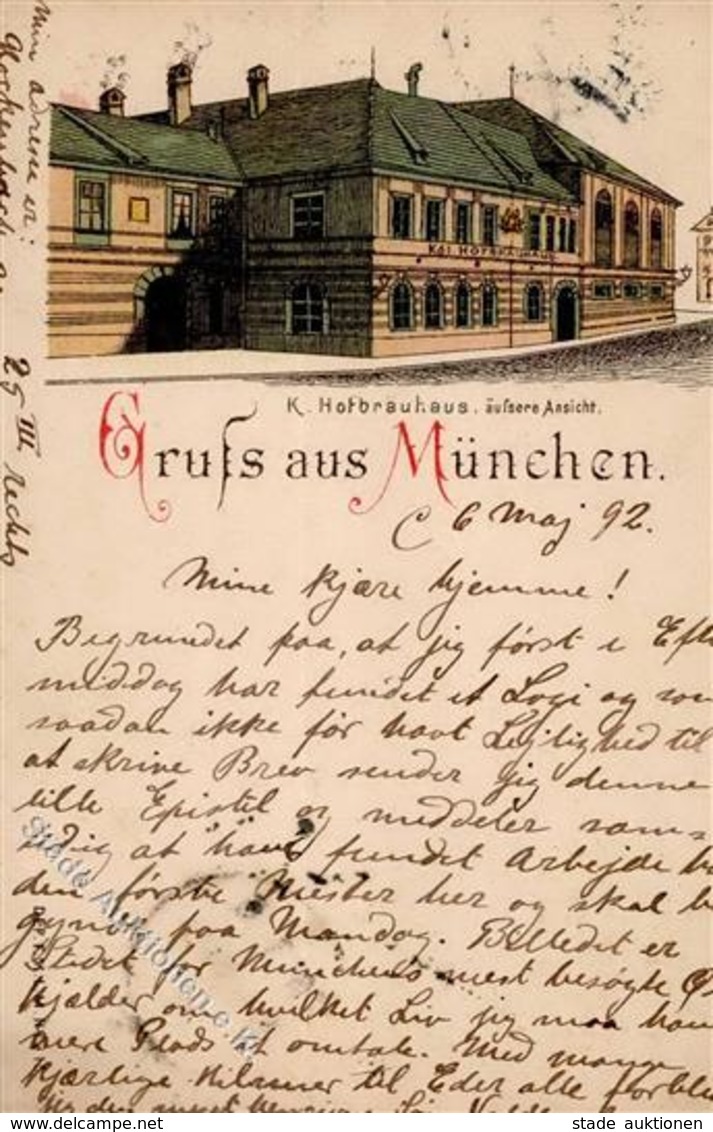 Min adresse er:
25 III rechts
KGL. HOFBRÄUHAUS
K. Hofbräuhaus. äufsere Ansicht.
Grufs aus München.
6 Maj 92.
Mine kjære hjemme!
Begrundet paa, at jeg först i Eft
middag har fundet et Logi og som
saadan ikke för havt Lejlighed til
at skrive Brev sender jeg denne
lille Epistel og meddeler sam-
tidig at have fundet Arbejde h
den förste Mester her og skal be
gynde paa Mandag. Billedet er
Stedet for Münchens mest besögte Øl
kjælder om hvilket Liv jeg maa have
mere Plads at omtale. Med mange
kjærlige Hilsner til Eder alle forbli
stade auktionen